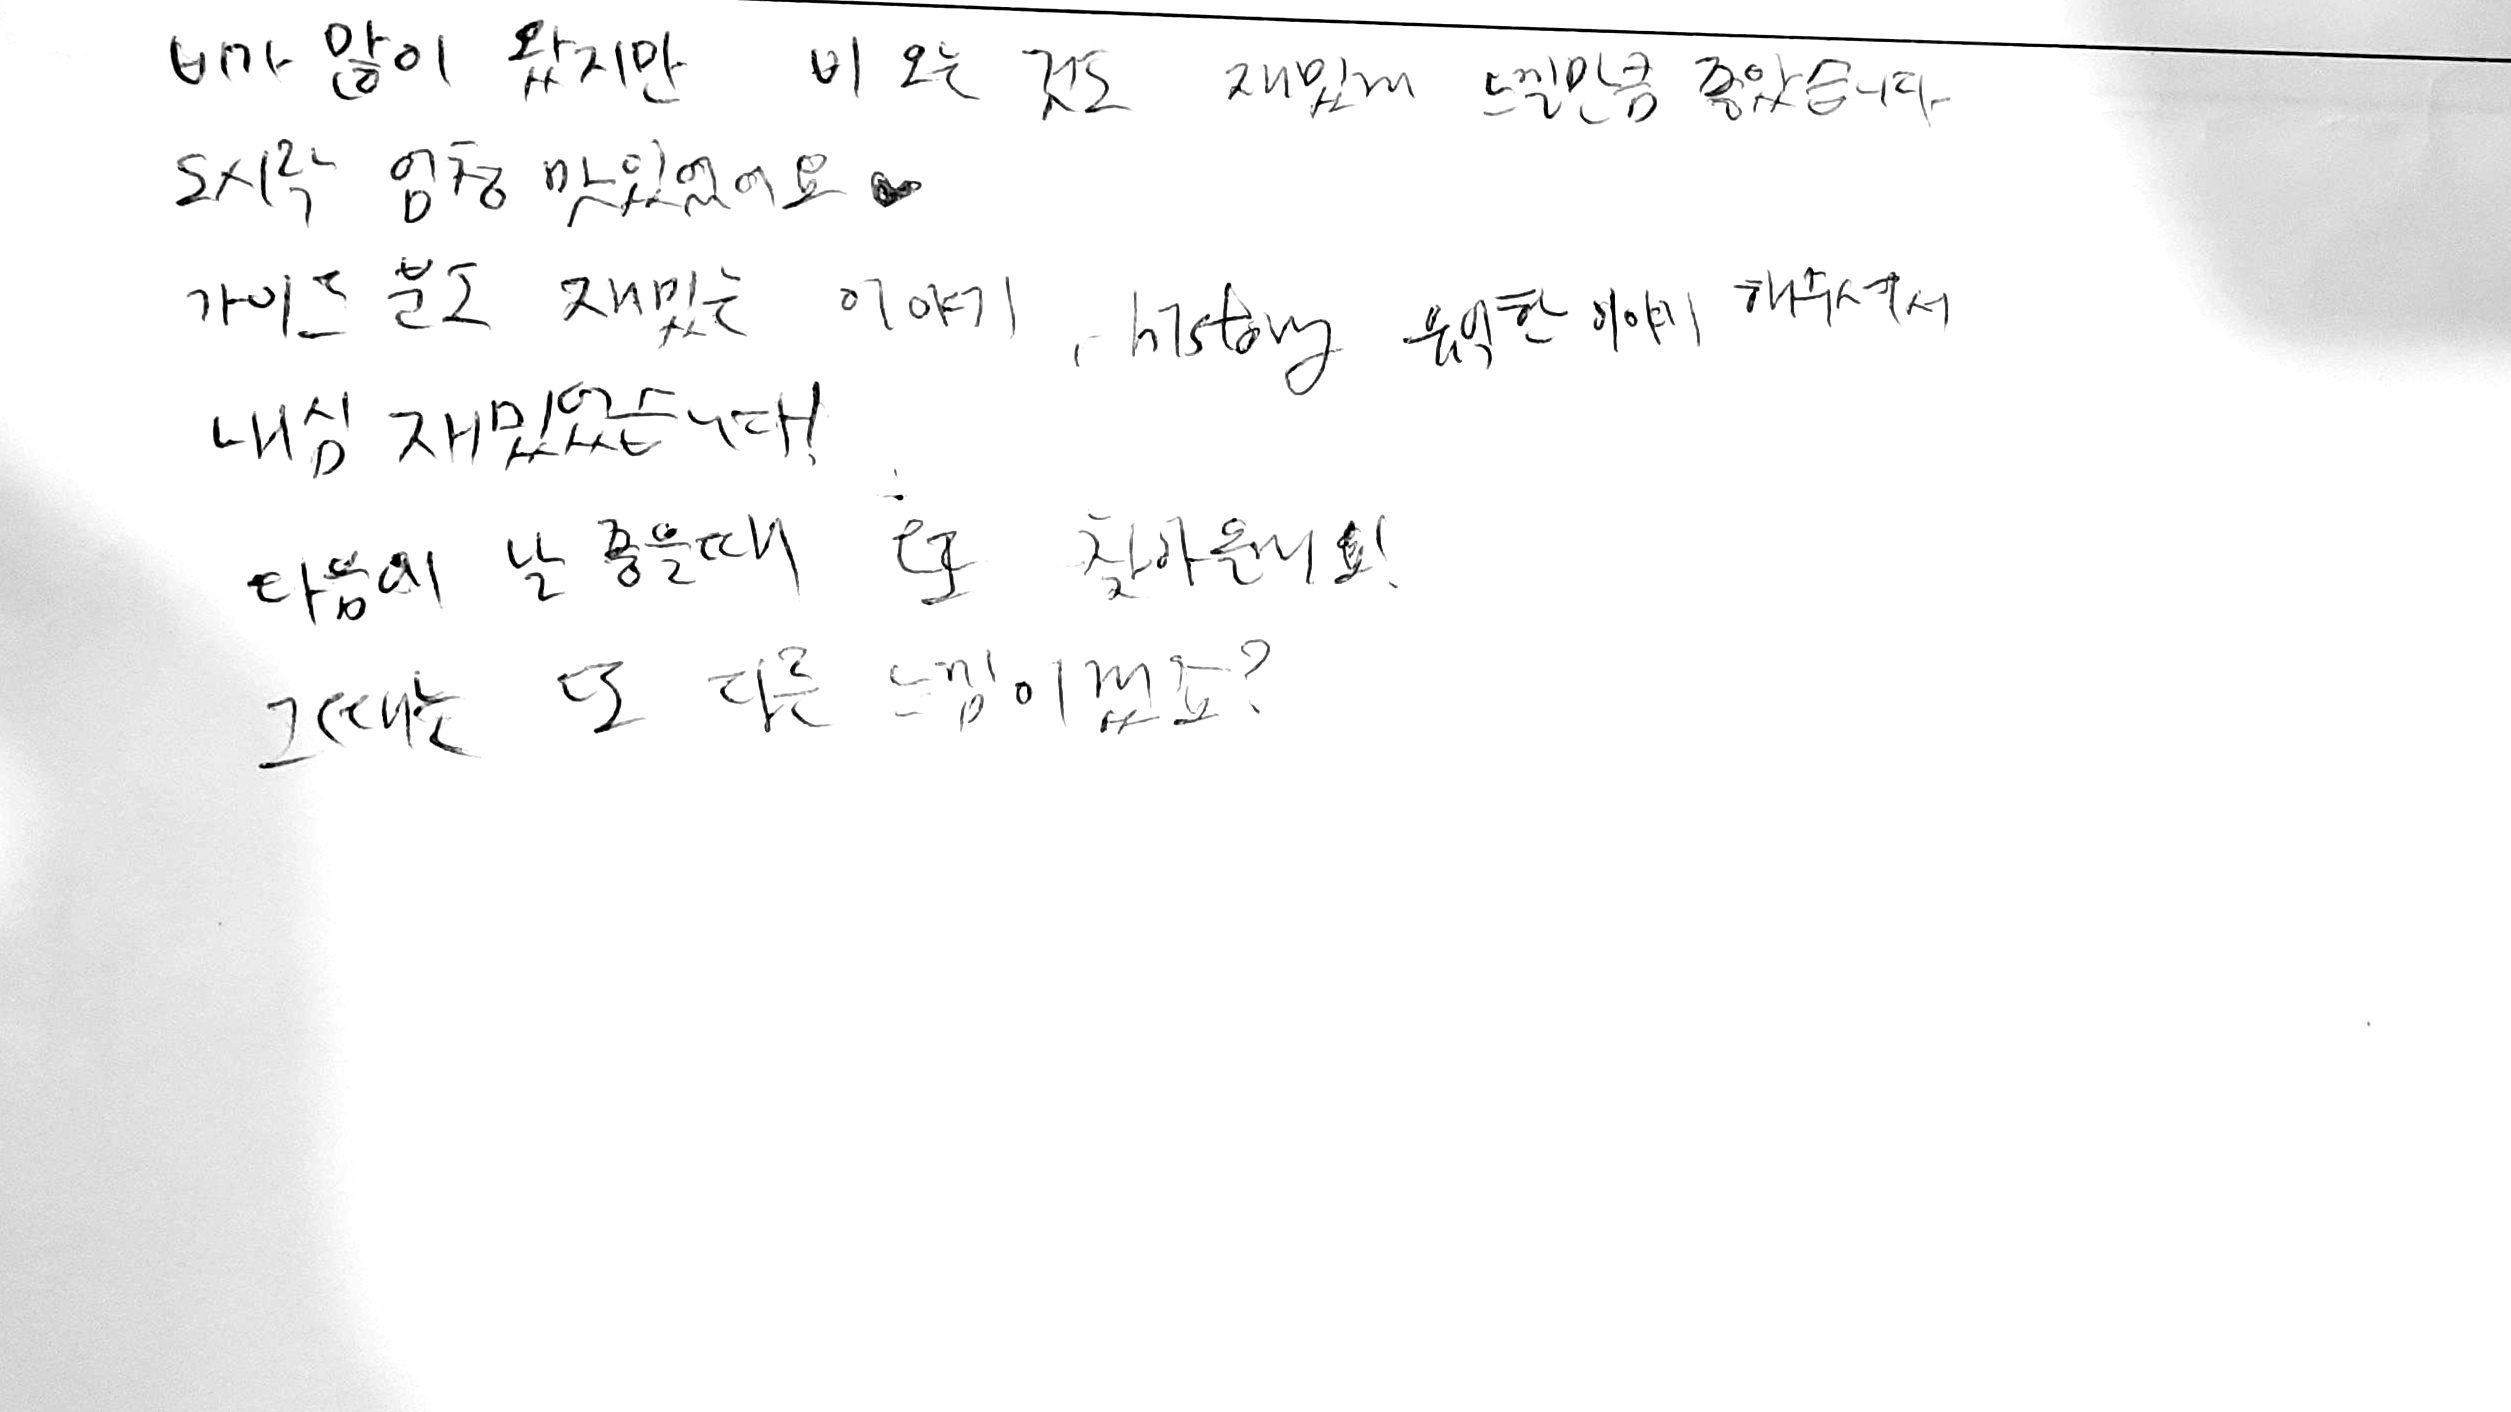 비가 많이 왔지만 비 오는 것도 재밌게 느낄만큼 좋았습니다
도시락 엄청 맛있었어요 ♥
가이드 분도 재밌는 이야기, history 유익한 이야기 해주셔서
내심 재밌었습니다!
다음에 날 좋을때 또 찾아올게요!
그때는 또 다른 느낌이겠죠?